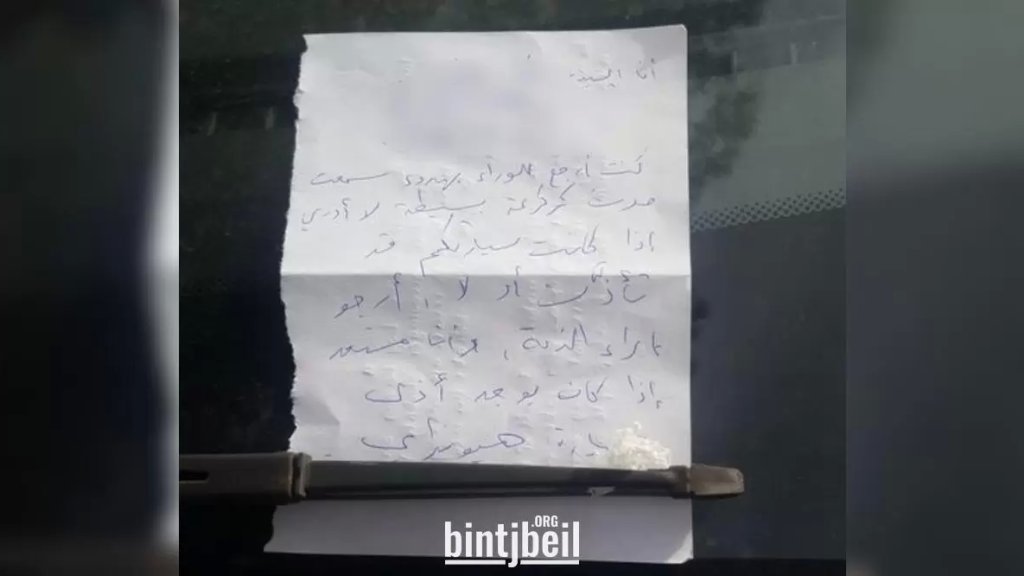 أنا السيد
كنت أرجع للوراء بهدوء سمعت
صوت كركعة بسيطة لا أدري
إذا كانت سيارتكم قد
تأذت أو لا، أرجو
إبراء الذمة، وأنا مستعد
إذا كان يوجد أذى
هيونداي
bintjbeil
.ORG